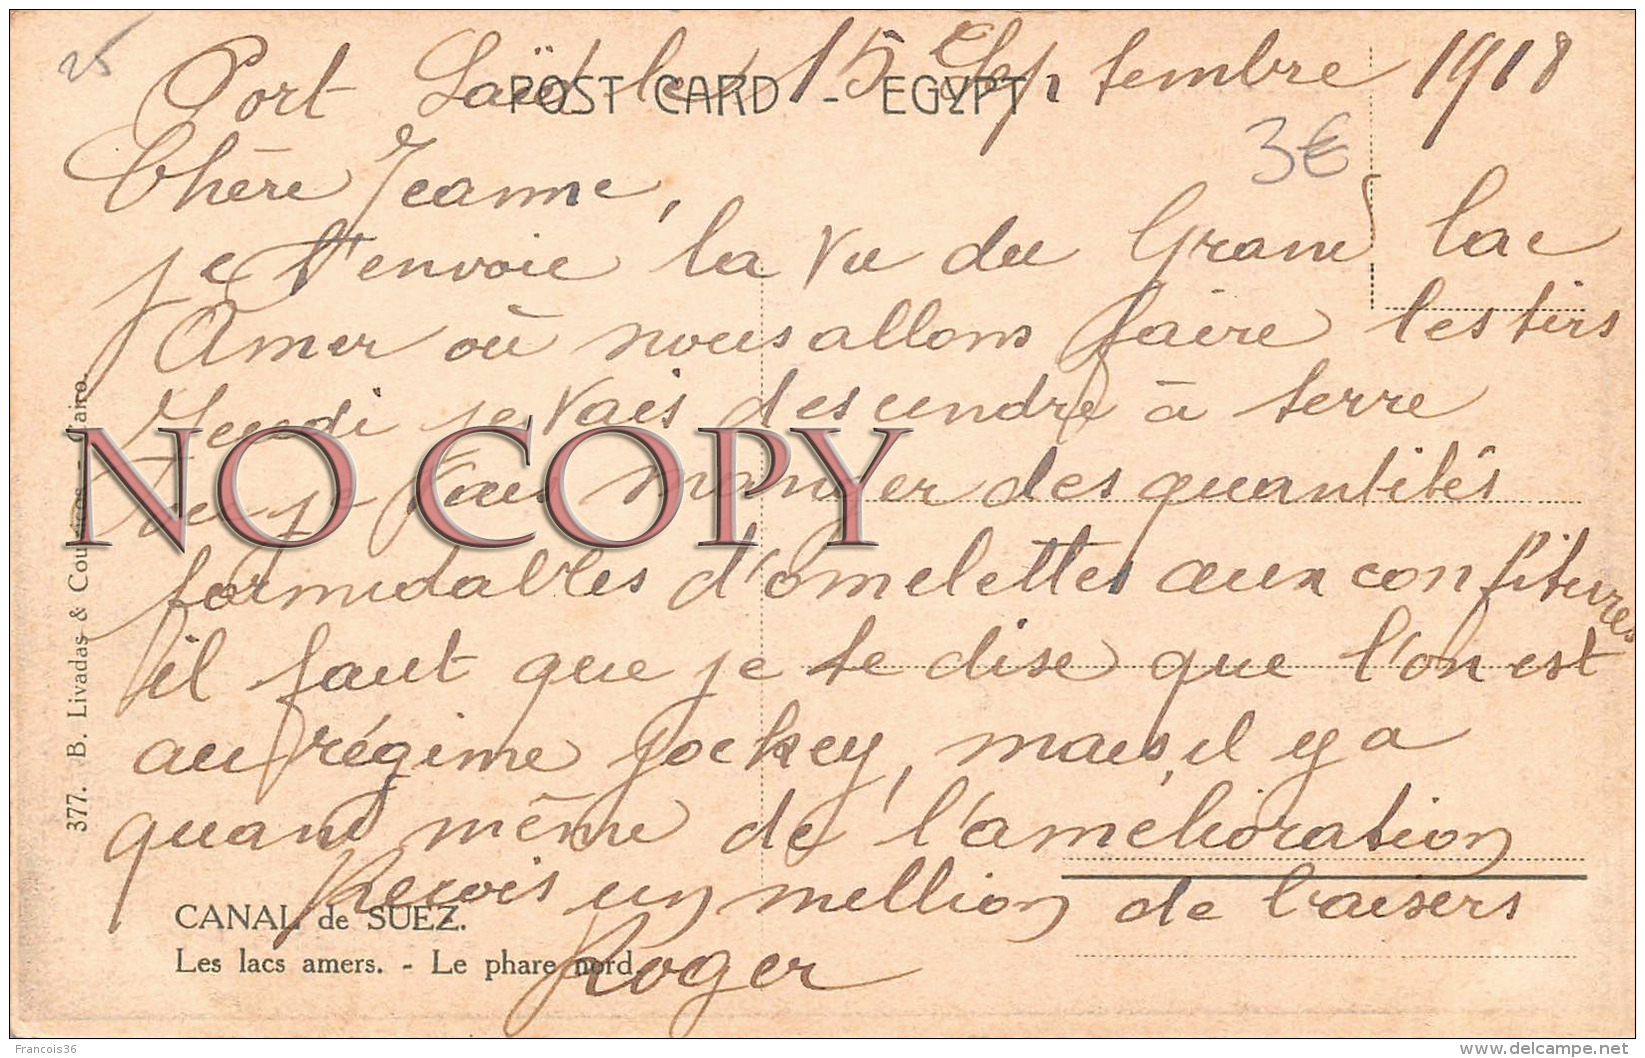 25
Port Saïd le 15 Septembre 1918
POST CARD - EGYPT
3€
Chère Jeanne,
je t'envoie la vu du Grand lac
Amer où nous allons faire les tirs
Jeudi je vais descendre à terre
je vais manger des quantités
formidables d'omelettes aux confitures
il faut que je te dise que l'on est
au régime jockey, mais il y a
quand même de l'amélioration
Recois un million de baisers
Roger
CANAL de SUEZ.
Les lacs amers. - Le phare nord.
377. B. Livadas & Cairo.
NO COPY
Francois36
delcampe.net